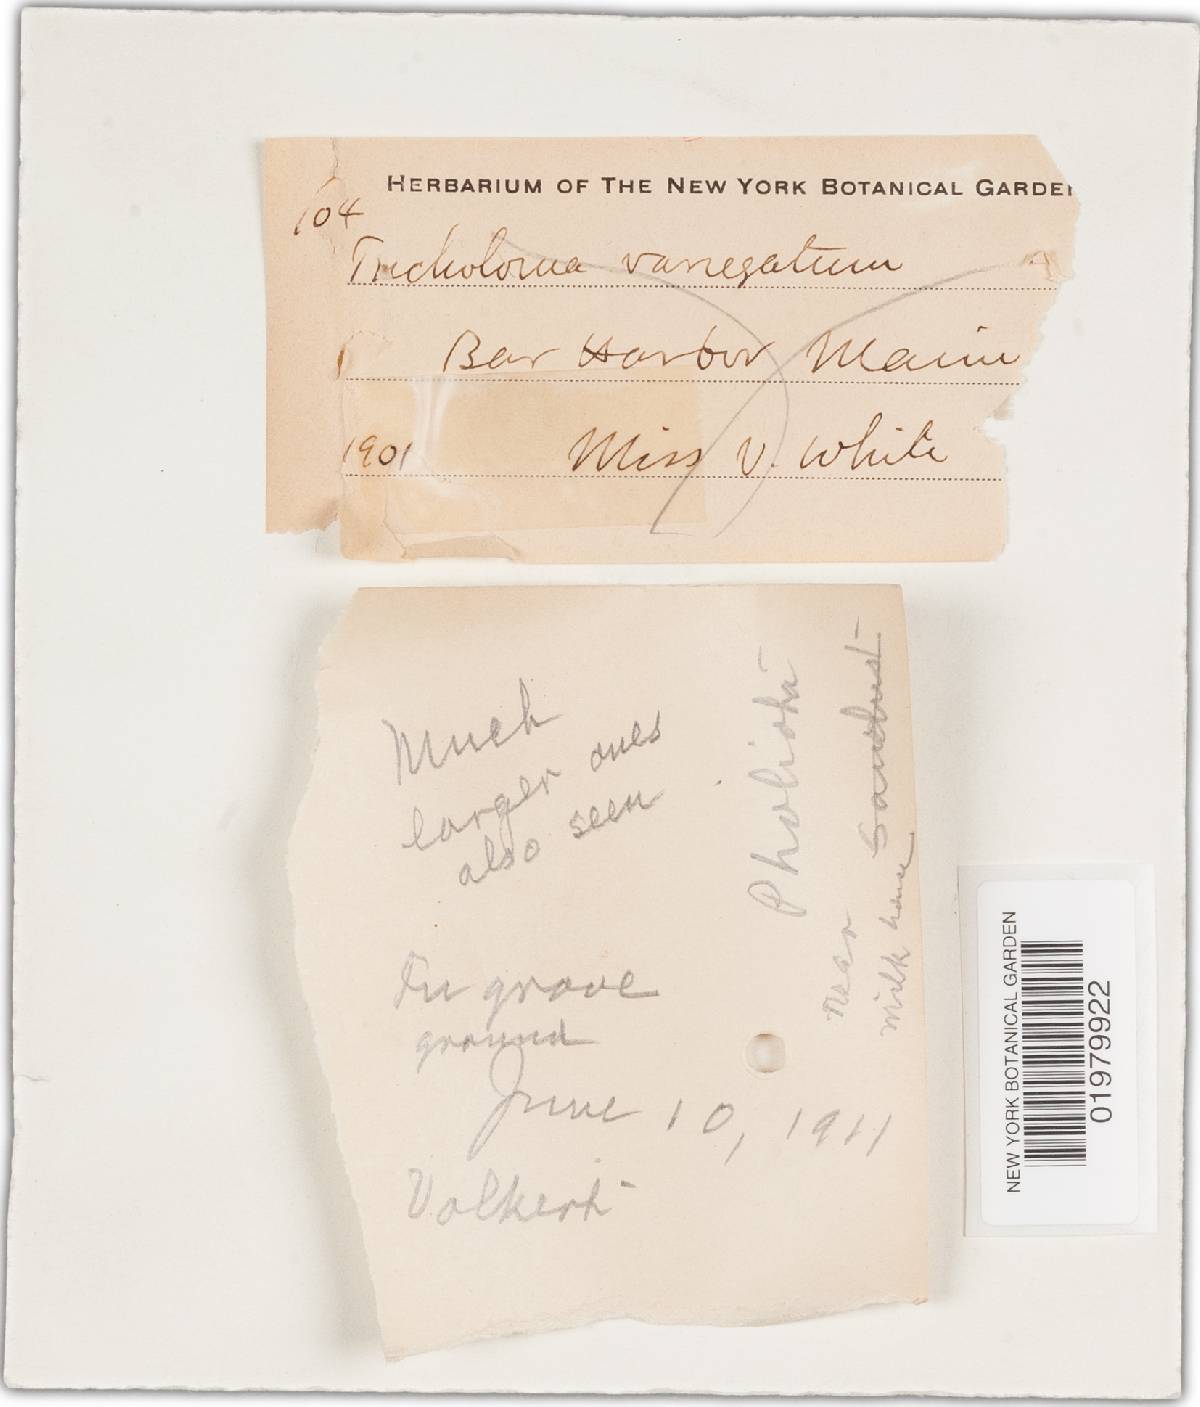 HERBARIUM OF THE NEW YORK BOTANICAL GARDEN
104
Tricholoma variegatum
Bar Harbor Maine
1901 Miss V. White
Much
larger ones
also seen
In grove
ground
June 10, 1911
Volkert
Pholiota
near
milk house
NEW YORK BOTANICAL GARDEN
01979922